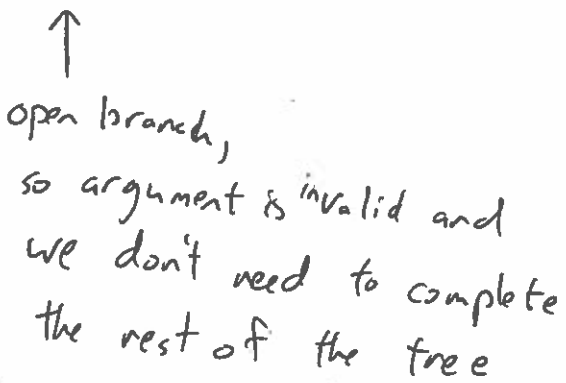 ↑
open branch,
so argument is invalid and
we don't need to complete
the rest of the tree